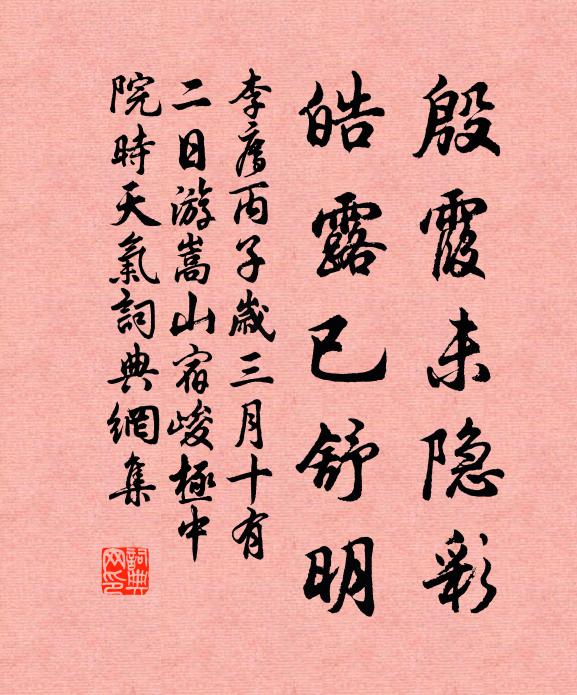 殷霞未隐彩
皓露已舒明
李廌丙子歲三月十有
二日游嵩山宿峻極中
院時天氣詞典網集
詞典网印